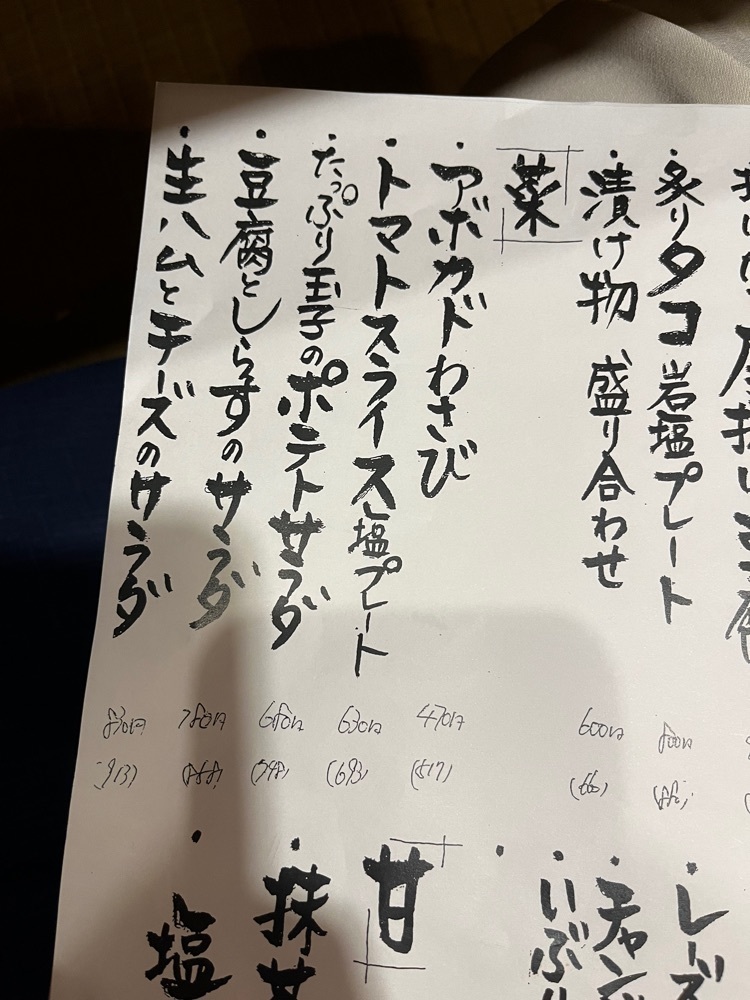 炙りタコ 岩塩プレート
800円
(880)
漬け物 盛り合わせ
600円
(660)
菜
アボカドわさび
470円
(517)
トマトスライス 塩プレート
630円
(693)
たっぷり玉子のポテトサラダ
680円
(748)
豆腐としらすのサラダ
780円
(858)
生ハムとチーズのサラダ
830円
(913)
レーズ
チャン
いぶり
甘
抹
塩